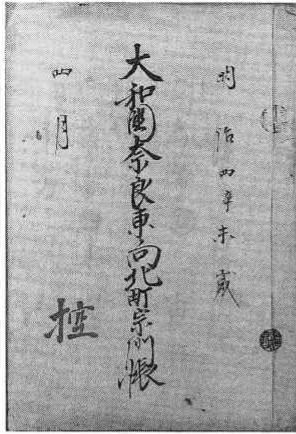 明治四辛未歳
大和國奈良東向北町宗門帳
四月
控